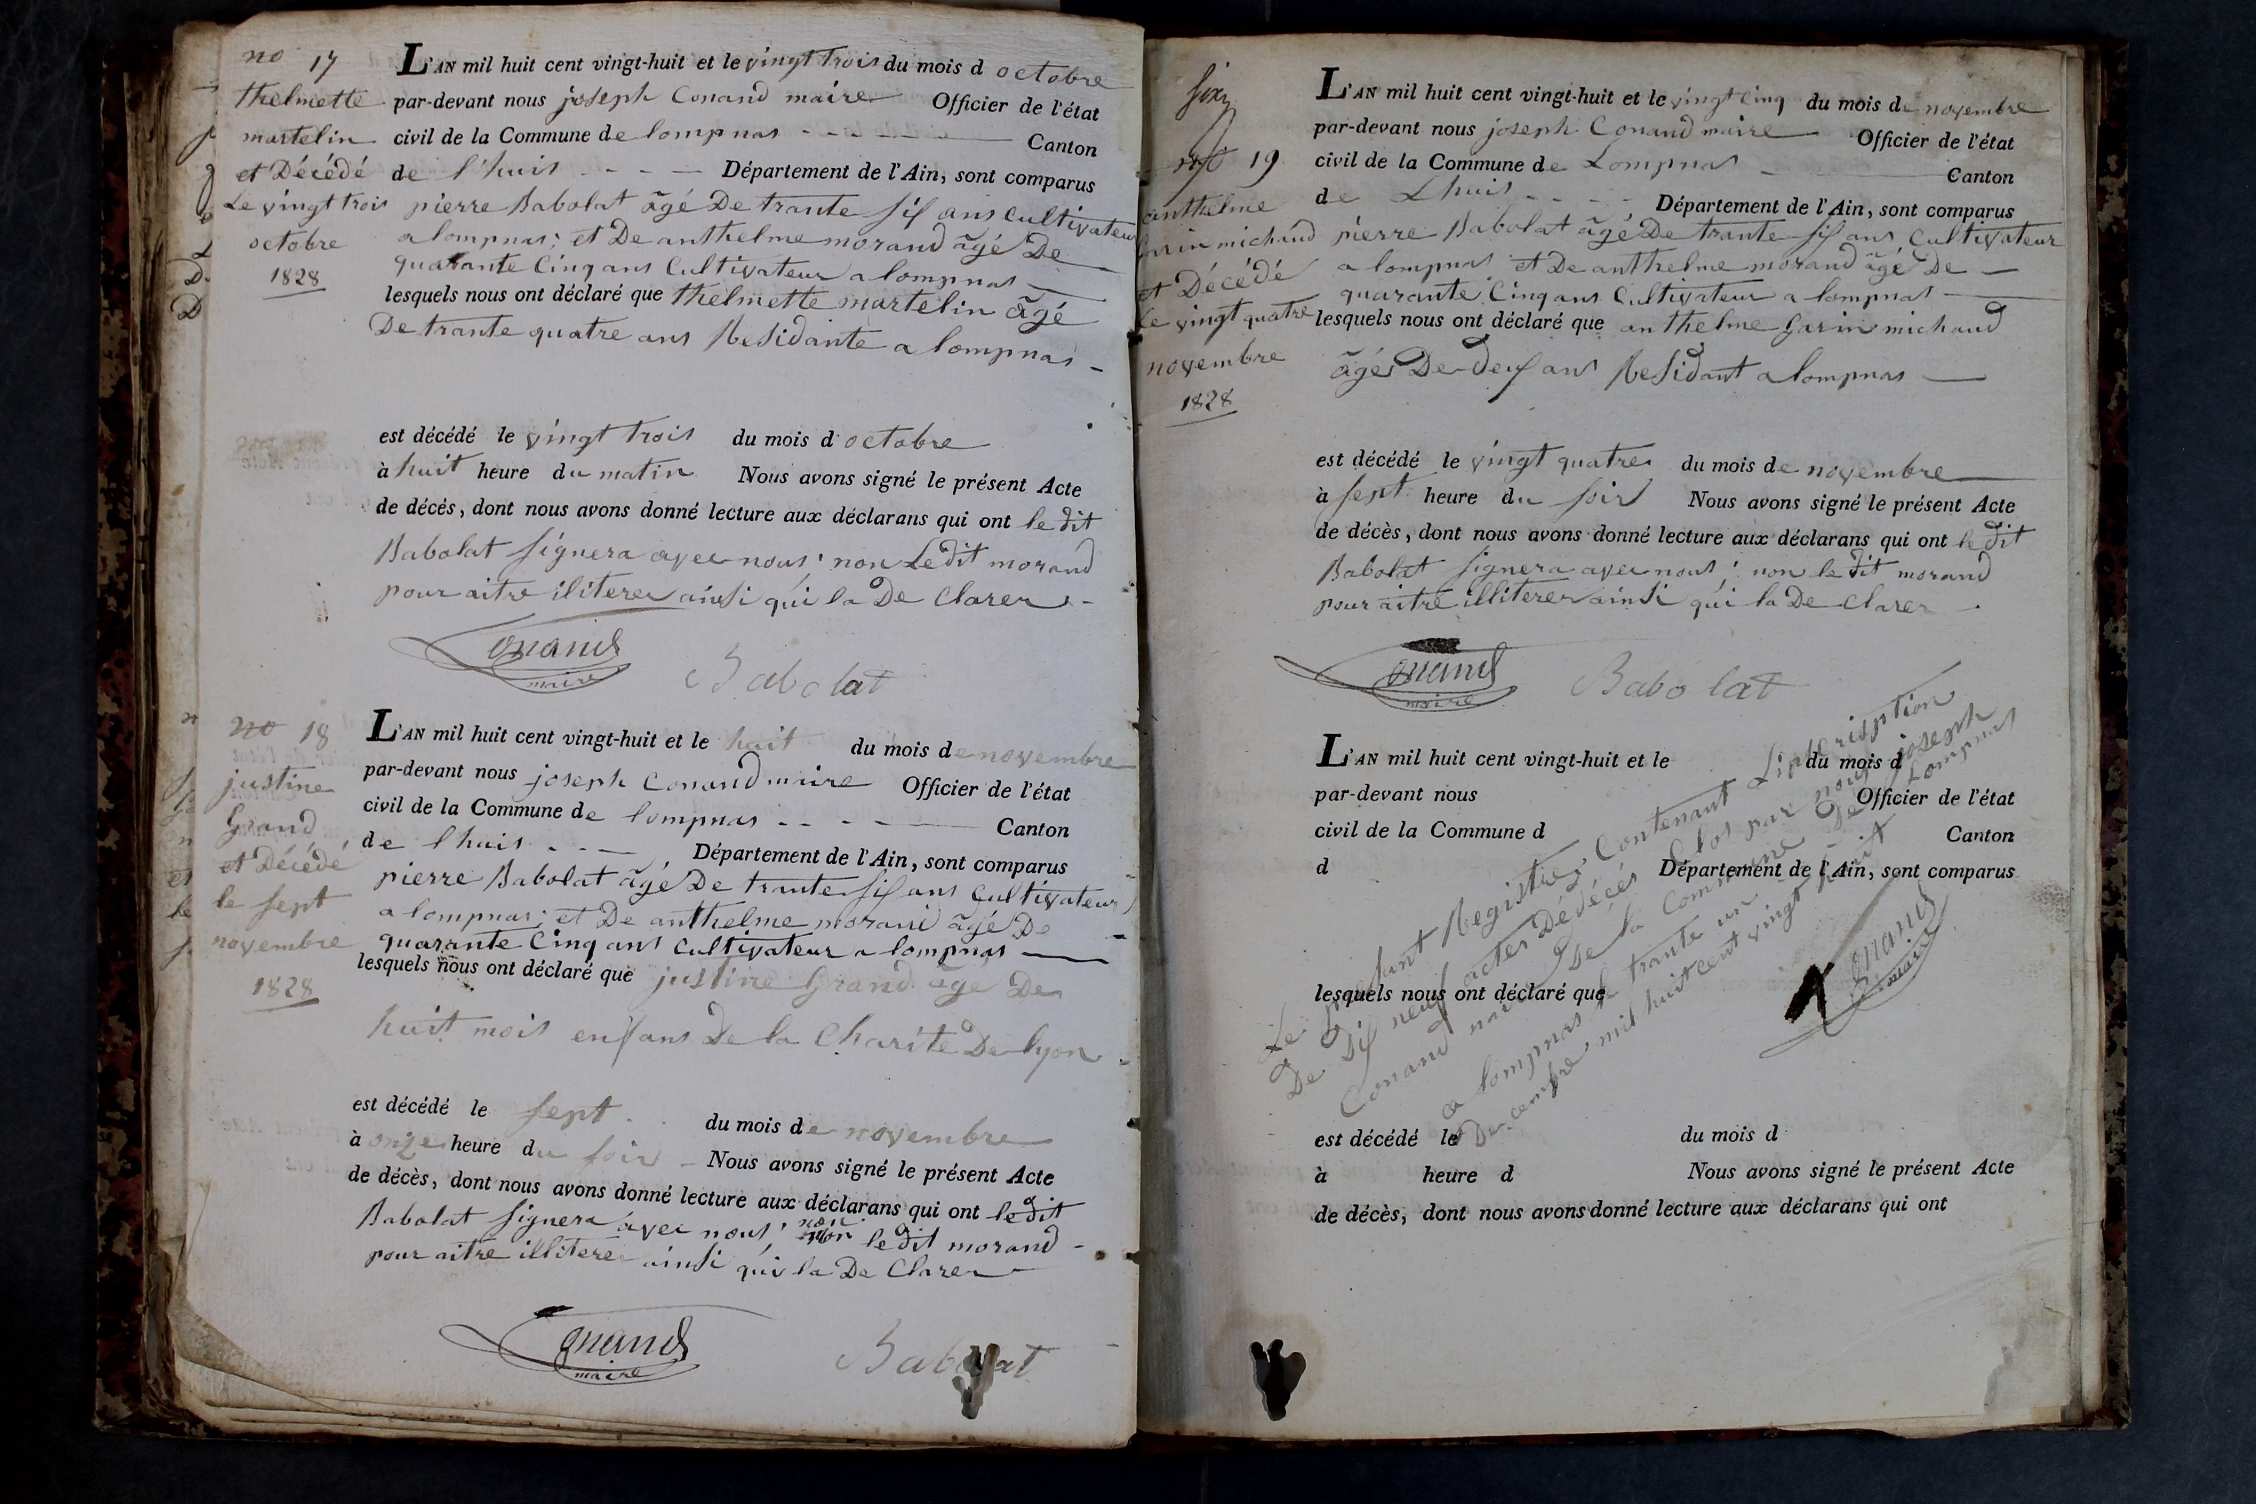 no 17
thelmette
martelin
et Décédé
Le vingt trois
octobre
1828
L'AN mil huit cent vingt-huit et le vingt trois du mois d octobre
par-devant nous joseph Conand maire Officier de l'état
civil de la Commune de lompnas - - - - - Canton
de l'huis - - - Département de l'Ain, sont comparus
pierre Babolat âgé De trante sis ans Cultivateur
a lompnas; et De anthelme morand âgé De
quarante Cinq ans Cultivateur a lompnas
lesquels nous ont déclaré que thelmette martelin âgé
De trante quatre ans Residante a lompnas -
est décédé le vingt trois du mois d octobre
à huit heure du matin Nous avons signé le présent Acte
de décés, dont nous avons donné lecture aux déclarans qui ont le dit
Babolat signera avec nous; non Ledit morand
pour aitre iliterer ainsi qui la De Clarer -
Conand
maire
Babolat
no 18
justine
Grand
et Décédé
le sept
novembre
1828
L'AN mil huit cent vingt-huit et le huit du mois de novembre
par-devant nous joseph Conand maire Officier de l'état
civil de la Commune de lompnas - - - - Canton
de lhuis - - - Département de l'Ain, sont comparus
pierre Babolat âgé De trante sis ans Cultivateur
a lompnas; et De anthelme morand âgé De
quarante Cinq ans Cultivateur a lompnas
lesquels nous ont déclaré que justine Grand âgé De
huit mois enfans De la Charité De lyon
est décédé le sept du mois de novembre
à onze heure du soir - Nous avons signé le présent Acte
de décès, dont nous avons donné lecture aux déclarans qui ont le dit
Babolat signera avec nous; non le dit morand -
pour aitre illiterer ainsi qui la De Clarer
Conand
maire
Babolat
six
no 19
anthelme
Garin michaud
et Décédé
Le vingt quatre
novembre
1828
L'AN mil huit cent vingt-huit et le vingt cinq du mois de novembre
par-devant nous joseph Conand maire Officier de l'état
civil de la Commune de Lompnas - Canton
de Lhuis - - - - Département de l'Ain, sont comparus
pierre Babolat âgé De trante sis ans Cultivateur
a lompnas et De anthelme morand âgé De -
quarante Cinq ans Cultivateur a lompnas
lesquels nous ont déclaré que anthelme Garin michaud
âgé De deus ans Residant a lompnas
est décédé le vingt quatre du mois de novembre
à sept heure du soir Nous avons signé le présent Acte
de décès, dont nous avons donné lecture aux déclarans qui ont le dit
Babolat signera avec nous; non le dit morand
pour aitre illiterer ainsi qui la De Clarer -
Conand
maire
Babolat
L'AN mil huit cent vingt-huit et le du mois d
par-devant nous Officier de l'état
civil de la Commune d Canton
d Département de l'Ain, sont comparus
lesquels nous ont déclaré que
est décédé le du mois d
à heure d Nous avons signé le présent Acte
de décès, dont nous avons donné lecture aux déclarans qui ont
Le présant Registre Contenant
De Dis neuf actes Dédécés Clos par nous joseph
Conand maire De la Commune De Lompnas
a lompnas le trante un
Decembre mil huit cent vingt huit
Conand
maire